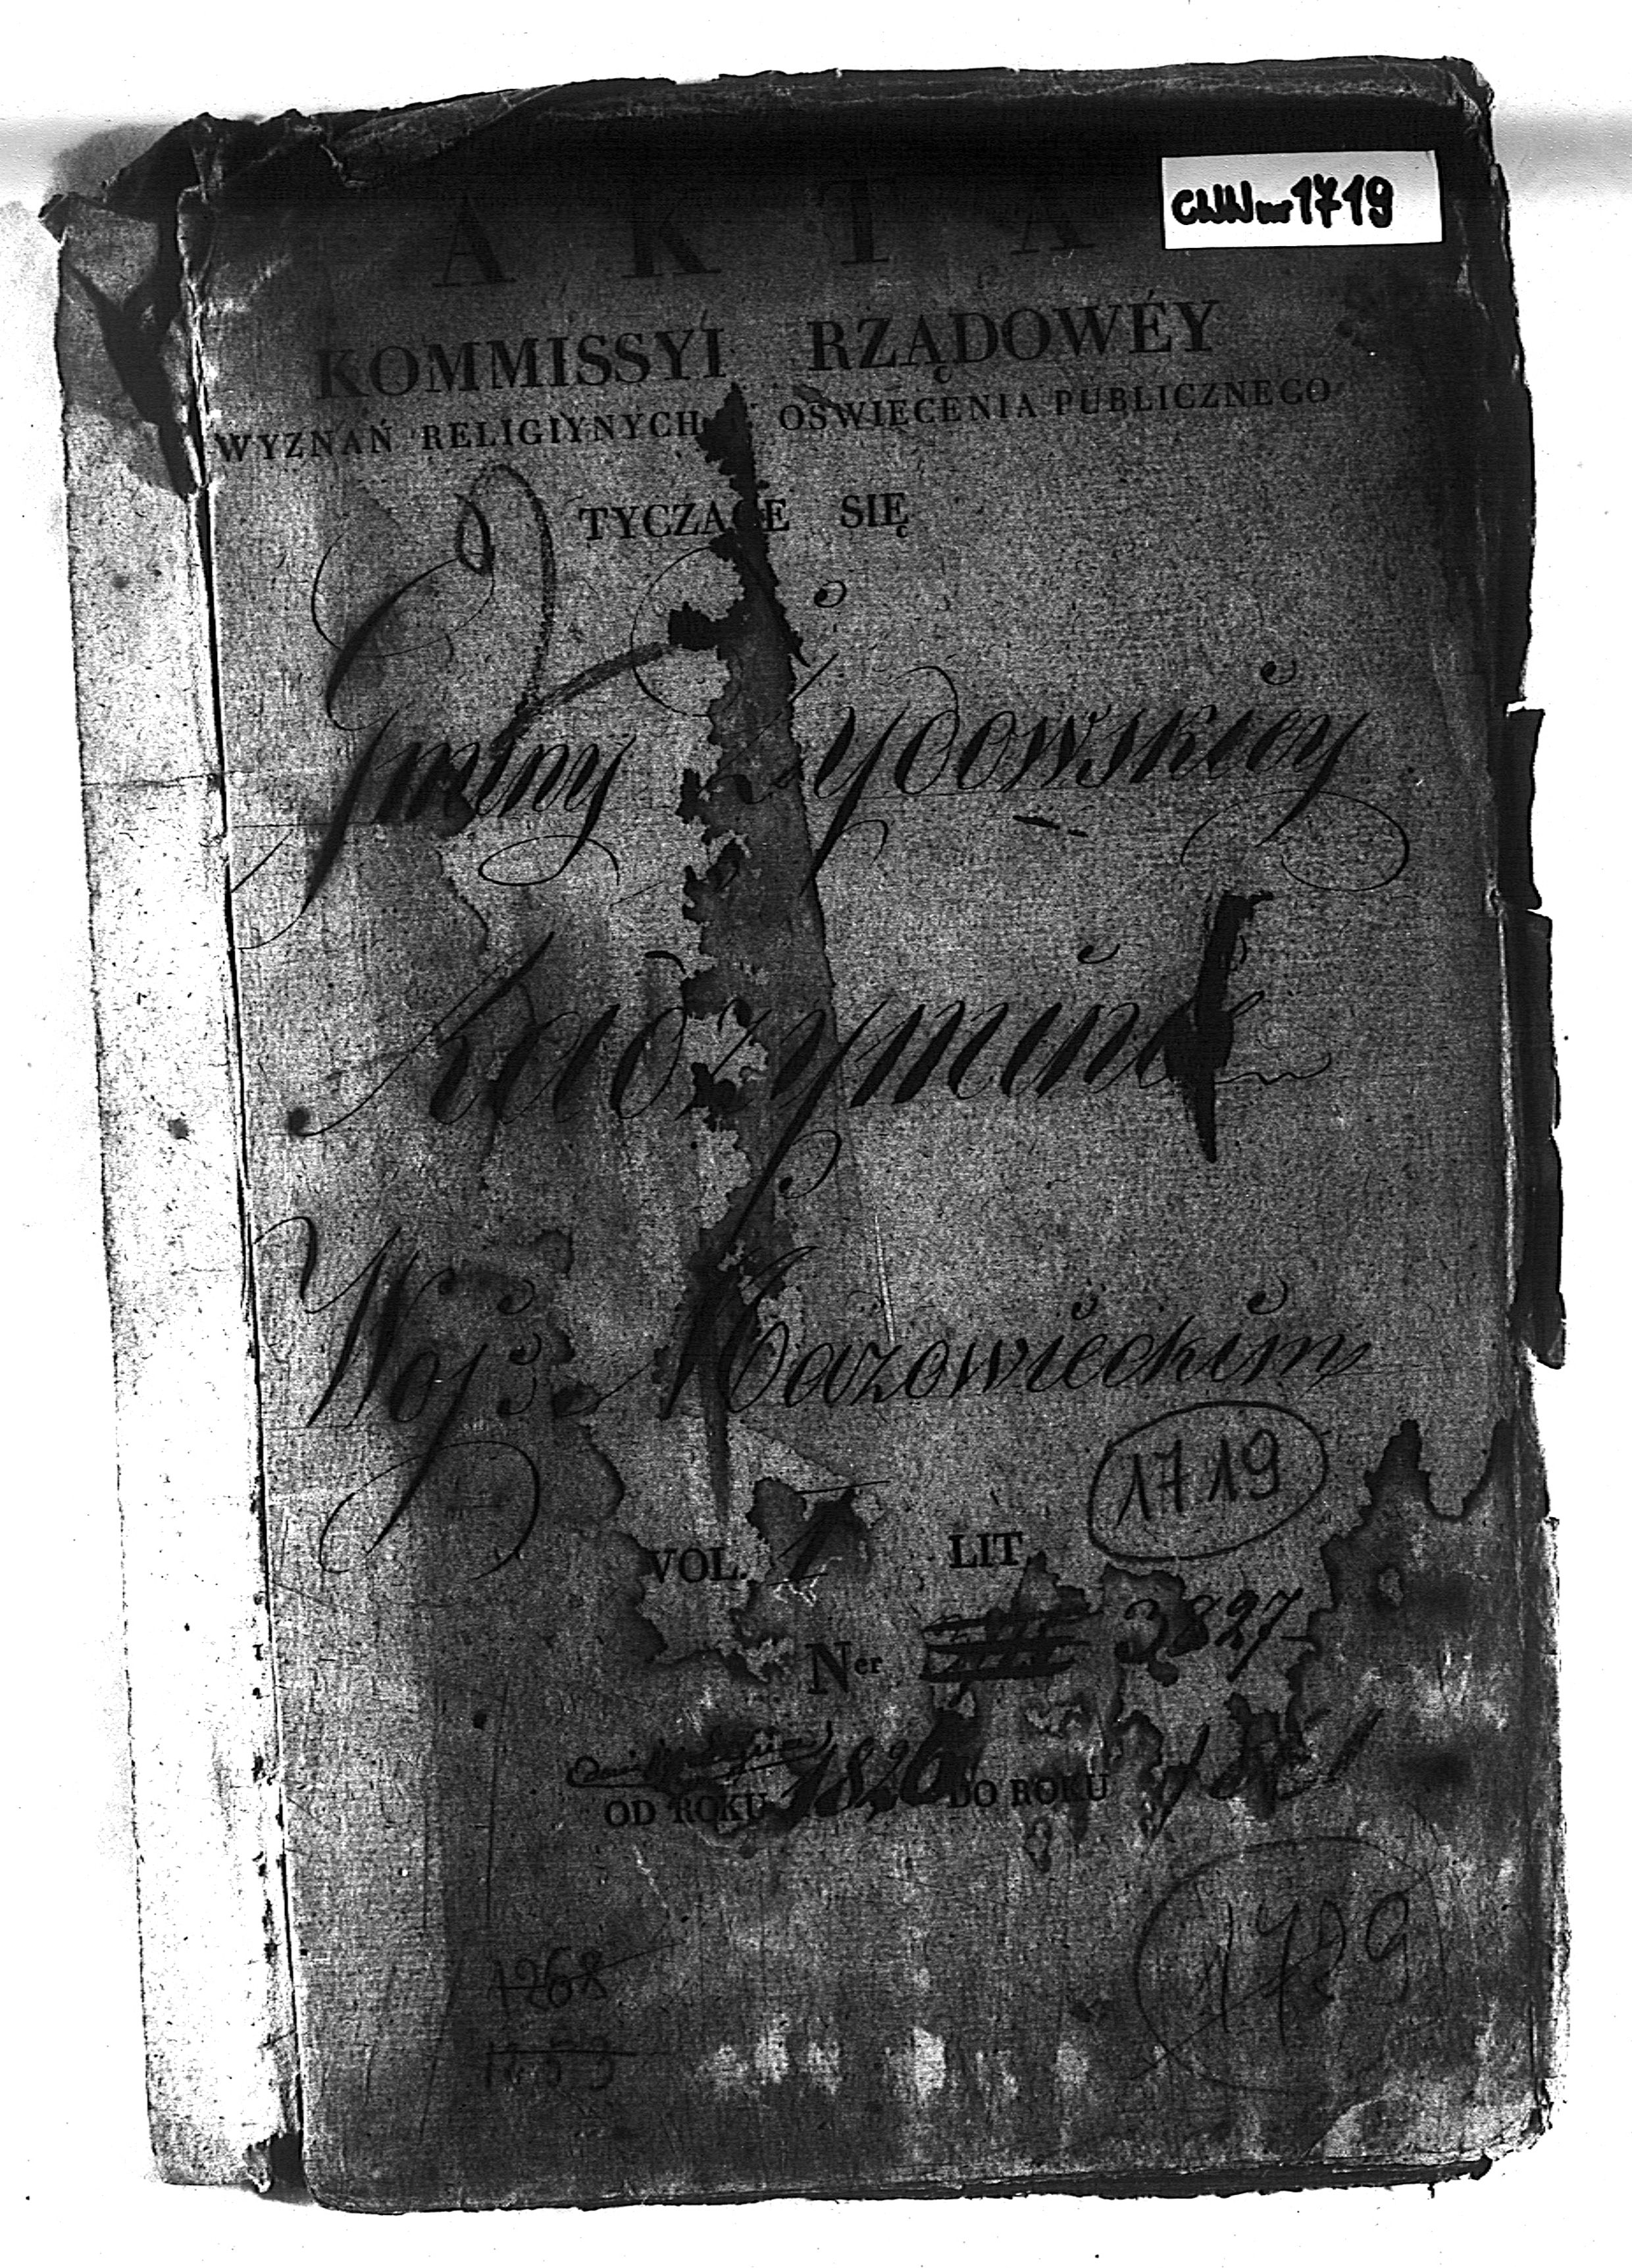 CWW nr 1719
A K T A
KOMMISSYI RZĄDOWÉY
WYZNAŃ RELIGIYNYCH OŚWIĘCENIA PUBLICZNEGO
TYCZĄCE SIĘ
Gminy Żydowskiey
Radzymin
Wojdz. Mazowieckim
1719
VOL. 1 LIT.
Ner 3827
OD ROKU 1826 DO ROKU
1729
1268